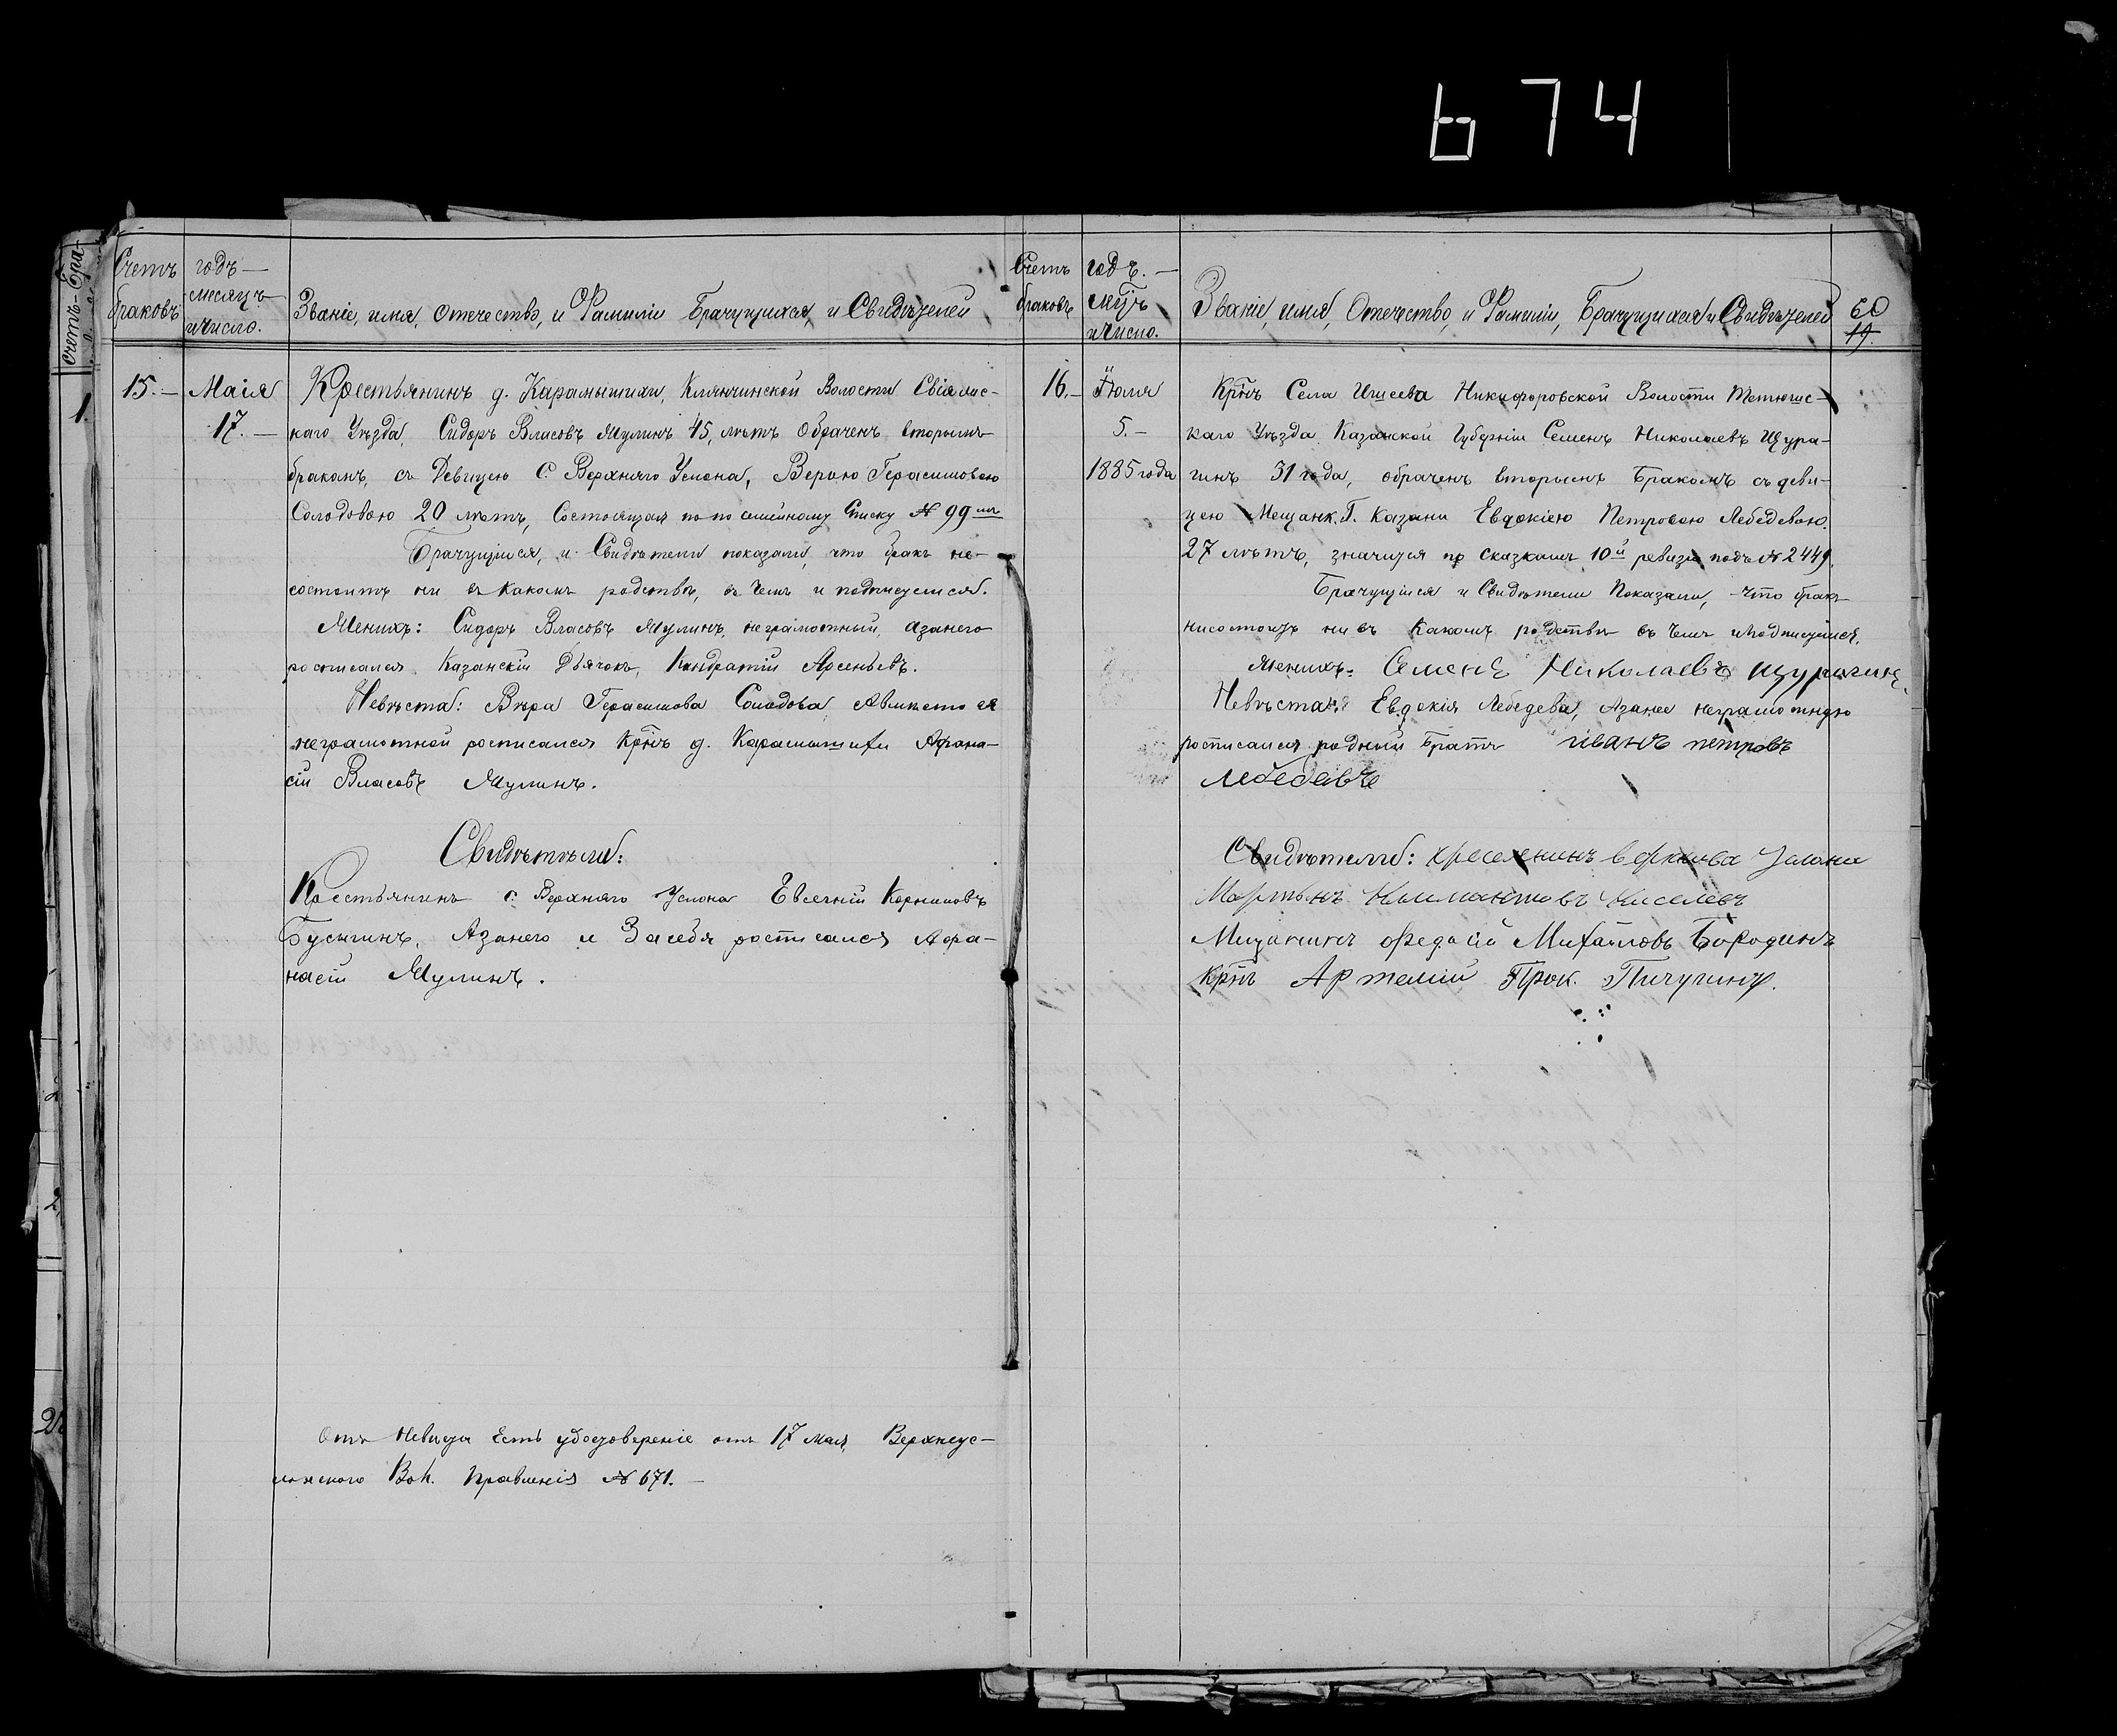 674
Счетъ
браковъ
годъ —
месяцъ
и число.
Званіе, имя, отечество, и Фамиліи Брачущихся, и Свидѣтелей
15. —
Маія
17. —
Крестьянинъ д. Карамышихи, Клянчинской Волости Свіяжс-
каго Уѣзда, Сидоръ Власовъ Мулинъ 45, лѣтъ обраченъ вторымъ
бракомъ, съ Девицею С. Верхняго Услона, Верою Герасимовою
Солодовою 20 лѣтъ, Состоящая по по семейному Списку № 99
Брачущіися, и Свидѣтели показали, что бракъ не-
состоитъ ни въ какомъ родствѣ, въ чемъ и подписуемся.
Женихъ: Сидоръ Власовъ Мулинъ, неграмотный, азанего
росписался Казанскій Дьячокъ, Кондратій Арсеньевъ.
Невѣста: Вѣра Герасимова Солодова, Авместо ея
неграмотной росписался Крнъ д. Карамышихи Афана-
сій Власовъ Мулинъ.
Свидѣтели:
Крестьянинъ с. Верхняго Услона Евсегній Корниловъ
Бусыгинъ, Азанего и Засебя росписался Афа-
насій Мулинъ.
Отъ Невѣсты Есть удостовереніе отъ 17 мая, Верхнеус-
лонского Вол. Правленія № 671. —
Счетъ
браковъ
годъ. —
мцъ
и число.
Званіе, имя, Отечество, и Фамиліи, Брачущихся и Свидѣтелей
60
19.
16. —
Іюля
5. —
1885 года
Крнъ Села Ишеева Никифоровской Волости Тетюшс-
каго Уѣзда Казанской Губерніи Семенъ Николаевъ Щура-
гинъ 31 года, обраченъ вторымъ Бракомъ съ деви-
цею Мещанк. Г. Казани Евдокіею Петровою Лебедевою.
27 лѣтъ, значится по сказкамъ 10й ревизіи подъ № 2449.
Брачущіися и Свидѣтели Показали, что бракъ
нисостоитъ ни въ Какомъ родстве въ чемъ и подписуемся.
Женихъ: Семенъ Николаевъ щурагинъ.
Невѣста: Евдокія Лебедева, Азанее неграмотную
росписался родный Братъ иванъ петровъ
лебедевъ
Свидѣтели: Верхнева Услона
Мартынъ Киселевъ
Мищанинъ Михайловъ Бородинъ
Крнъ Артемій Прок. Пичугинъ.